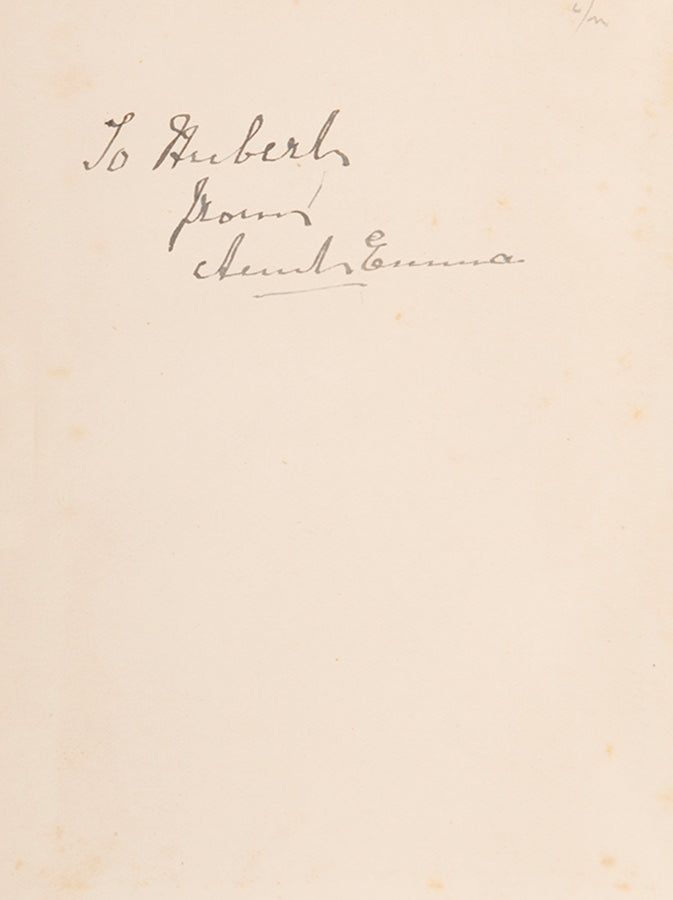 To Hubert
from
Aunt Emma